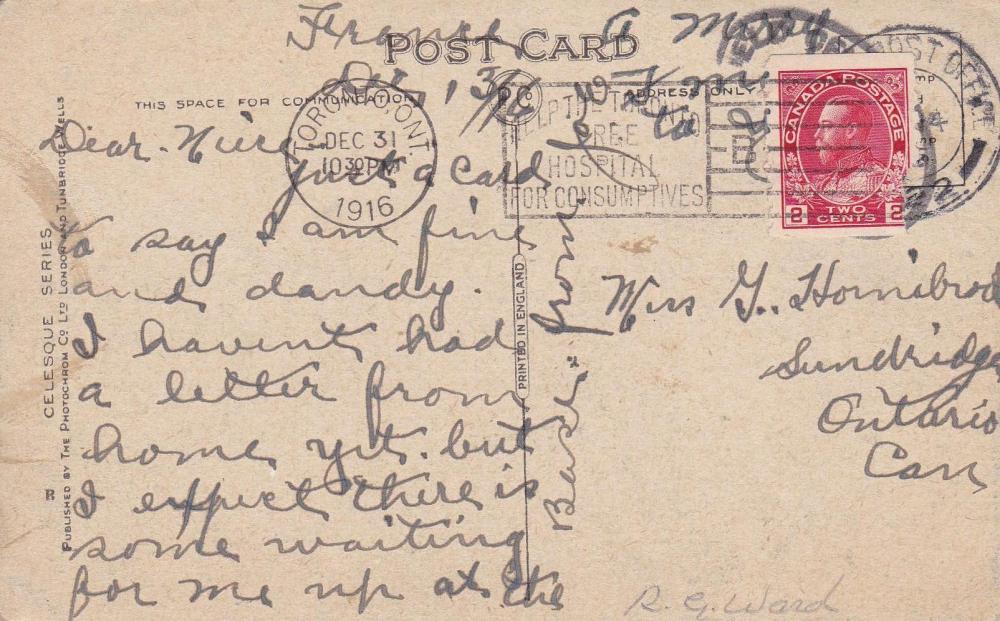 France
A Merry
POST CARD
Dec 13/16
THIS SPACE FOR COMMUNICATION
ADDRESS ONLY
TORONTO, ONT.
DEC 31
10 30 PM
1916
HELP THE TORONTO
FREE
HOSPITAL
FOR CONSUMPTIVES
POST OFFICE
CANADA POSTAGE
2 TWO CENTS 2
Dear
just a card
to say I am fine
and dandy.
I havent had
a letter from
home yet. but
I expect there is
some waiting
for me up at the
Base.
from
CELESQUE SERIES
PUBLISHED BY THE PHOTOCHROM CO LTD LONDON AND TUNBRIDGE WELLS
R
PRINTED IN ENGLAND
Miss G. Hornibrook
Sundridge
Ontario
Can
R. G. Ward